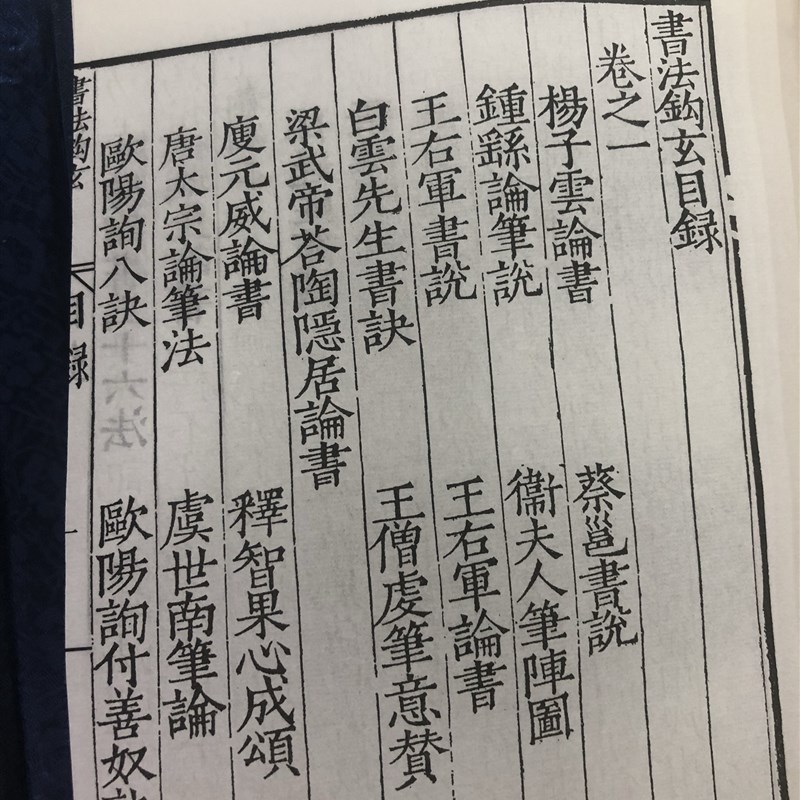 書法鈎玄目録
卷之一
楊子雲論書
蔡邕書説
鍾繇論筆説
衞夫人筆陣圖
王右軍書説
王右軍論書
白雲先生書訣
王僧虔筆意賛
梁武帝荅陶隠居論書
庾元威論書
釋智果心成頌
唐太宗論筆法
虞世南筆論
歐陽詢八訣
歐陽詢付善奴
書法鈎玄
目録
一